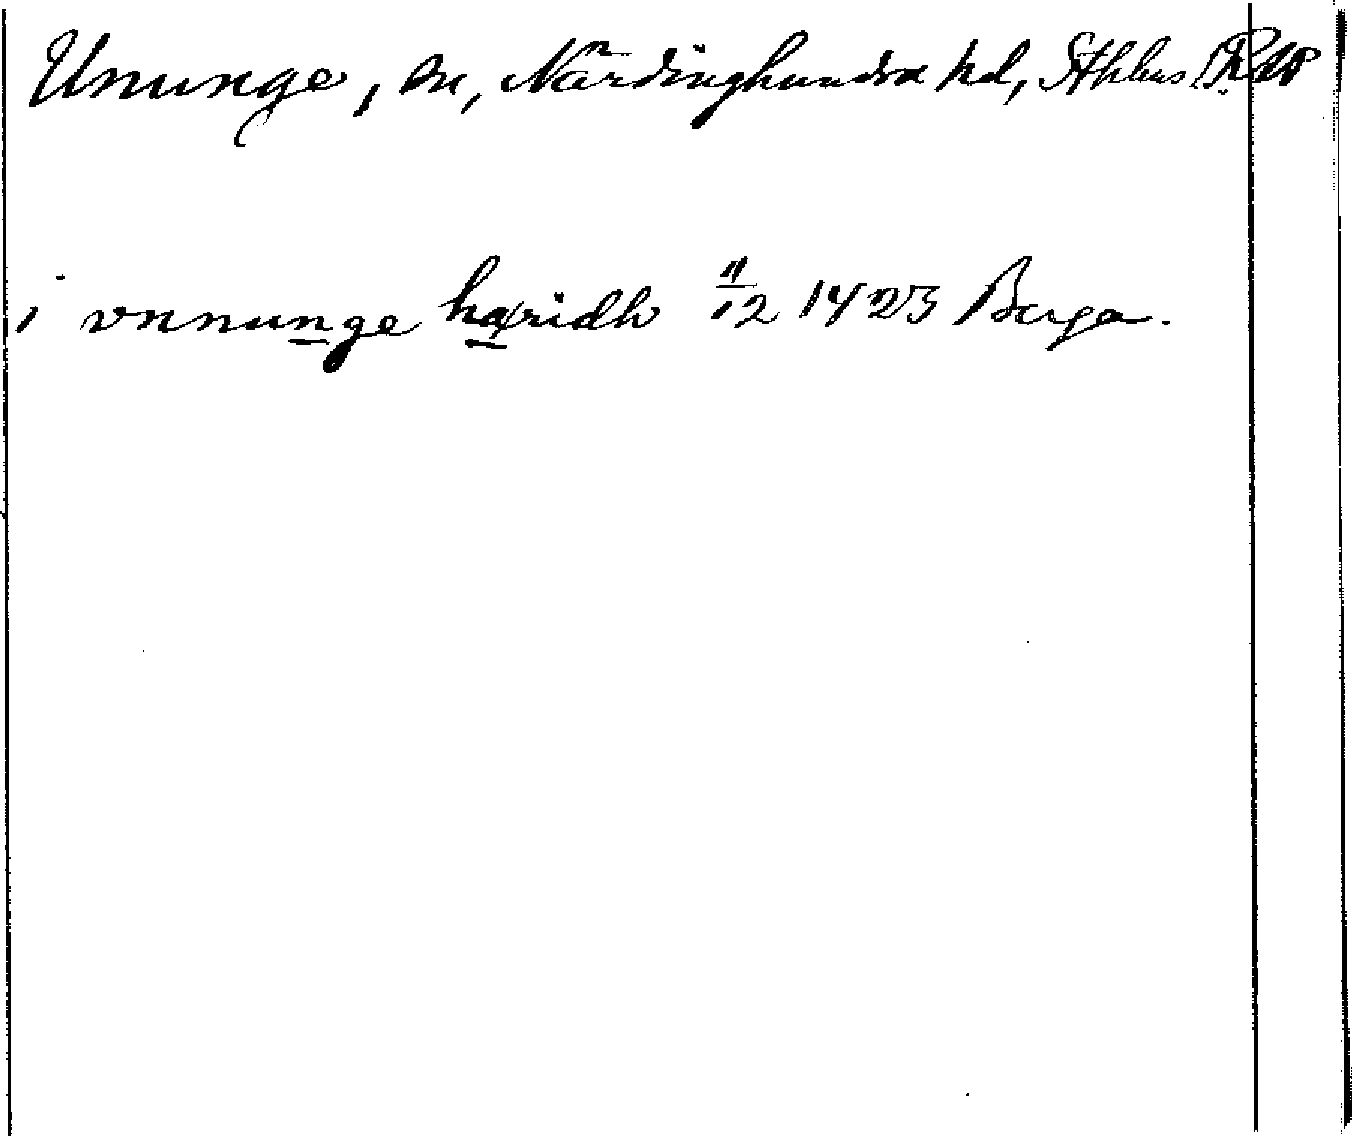 Ununge, sn, Närdinghundra hd, Sthlms l.
i vnnunge haridh 11/12 1423 Berga.